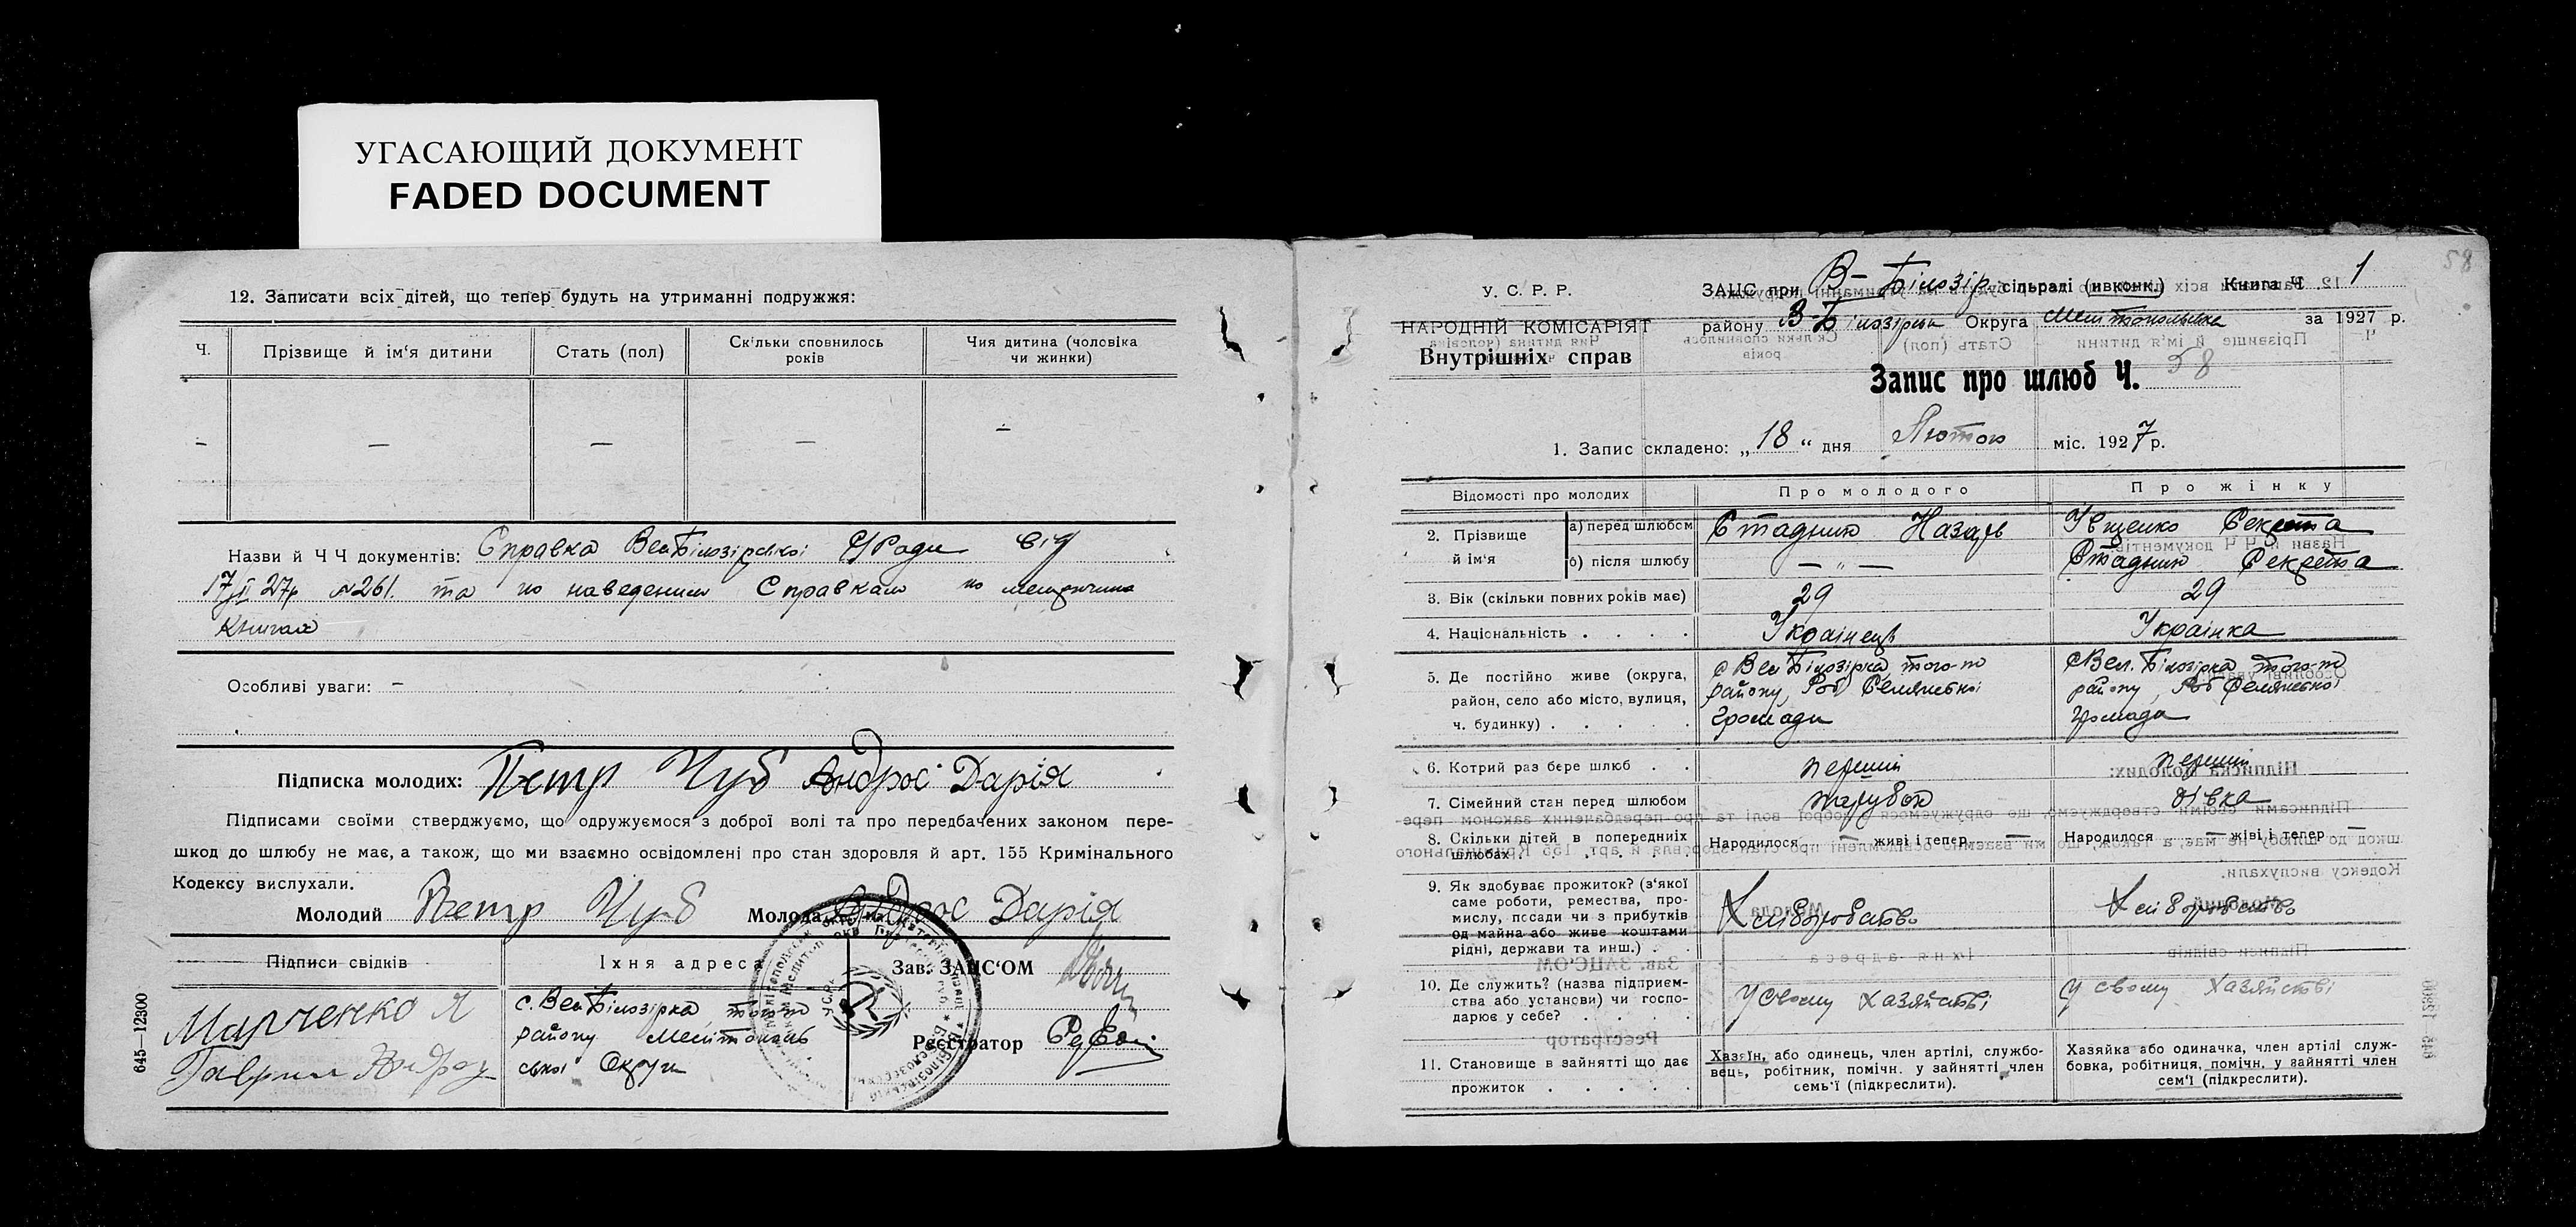 УГАСАЮЩИЙ ДОКУМЕНТ
FADED DOCUMENT
12. Записати всіх дітей, що тепер будуть на утриманні подружжя:
Ч.
Прізвище й ім'я дитини
Стать (пол)
Скільки сповнилось років
Чия дитина (чоловіка чи жинки)
— — — — —
Назви й Ч Ч документів: Справка Вел Білозірської С/Ради від
17/II 27р №261. та по наведеним Справкам по
Книгах
Особливі уваги: —
Підписка молодих: Петр Чуб Андрос Дарія
Підписами своїми стверджуємо, що одружуємося з доброї волі та про передбачених законом пере-
шкод до шлюбу не має, а також, що ми взаємно освідомлені про стан здоровля й арт. 155 Кримінального
Кодексу вислухали.
Молодий Петр Чуб Молода Андрос Дарія
Підписи свідків
Їхня адреса
Зав. ЗАЦС'ОМ
Марченко Я
Гаврил
с. Вел Білозірка того-ж
району Мелітополь
ської Округи
Реєстратор
645—12300
58
У. С. Р. Р.
НАРОДНІЙ КОМІСАРІЯТ
Внутрішніх справ
ЗАЦС при В-Білозір сільраді (нвконк.) Книга Ч. 1
району В-Білозірка Округа Мелітопольська за 1927 р.
Запис про шлюб Ч. 58
1. Запис складено: „18“ дня Лютого міс. 1927 р.
Відомості про молодих
Про молодого
Про жінку
2. Прізвище й ім'я
а) перед шлюбом Стадник Назарь Івщенко Секлета
б) після шлюбу — „ — Стадник Секлета
3. Вік (скільки повних років має) 29 29
4. Національність . . . . Українець Українка
5. Де постійно живе (округа, район, село або місто, вулиця, ч. будинку) . . . . .
с Вел Білозірка того-ж
району, Роб Селянської
громади
с Вел. Білозірка того-ж
району, Роб Селянської
громади
6. Котрий раз бере шлюб . . перший перший
7. Сімейний стан перед шлюбом парубок дівка
8. Скільки дітей в попередніх шлюбах . . . . . Народилося — живі і тепер — Народилося — живі і тепер —
9. Як здобуває прожиток? (з'якої
саме роботи, ремества, про-
мислу, посади чи з прибутків
од майна або живе коштами
рідні, держави та инш.) . .
Хліборобство Хліборобство
10. Де служить? (назва підприєм-
ства або установи) чи госпо-
дарює у себе? . . . .
У своему хазяйстві У своему хазяйстві
11. Становище в зайнятті що дає
прожиток . . . . .
Хазяїн, або одинець, член артілі, службо-
вець, робітник, помічн. у зайнятті член
семь'ї (підкреслити).
Хазяйка або одиначка, член артілі служ-
бовка, робітниця, помічн. у зайнятті член
сем'ї (підкреслити).